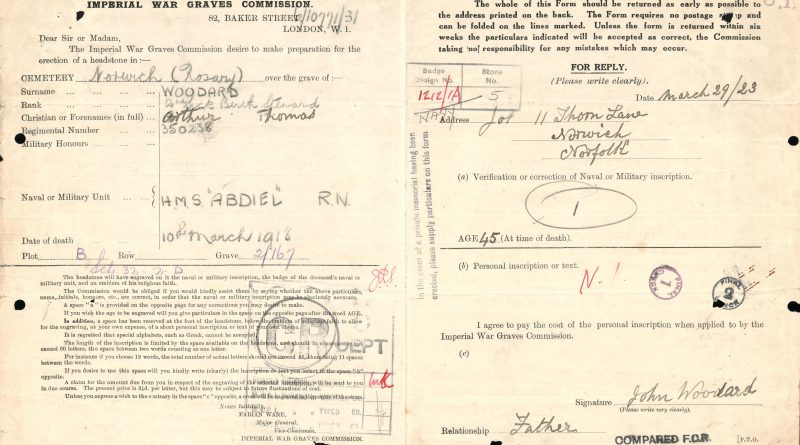 IMPERIAL WAR GRAVES COMMISSION.
82, BAKER STREET,
LONDON, W.1.
Dear Sir or Madam,
The Imperial War Graves Commission desire to make preparation for the
erection of a headstone in :—
CEMETERY Norwich (Rosary) over the grave of :—
Surname WOODARD
Rank Steward
Christian or Forenames (in full) Arthur Thomas
Regimental Number 350238
Military Honours
Naval or Military Unit H.M.S. "ABDIEL" R.N.
Date of death 10th March 1918
Plot B Row Grave 2/167
The headstone will have engraved on it the naval or military inscription, the badge of the deceased's naval or
military unit, and an emblem of his religious faith.
The Commission would be obliged if you would kindly assist them by saying whether the above particulars,
name, initials, honours, etc., are correct, in order that the naval or military inscription may be absolutely accurate.
A space "a" is provided on the opposite page for any corrections you may desire to make.
If you wish the age to be engraved you will give particulars in the space on the opposite page after the word AGE.
In addition, a space has been reserved at the foot of the headstone, below the emblem of religious faith to allow
for the engraving, at your own expense, of a short personal inscription or text
It is regretted that special alphabets, such as Greek, cannot be accepted
The length of the inscription is limited by the space available on the and should in consequence not
exceed 66 letters, the space between two words counting as one letter.
For instance if you choose 12 words, the total number of actual letters should not exceed 55, there being 11 spaces
between the words.
If you desire to use this space will you kindly write (clearly) the inscription or text you select in the space "b"
opposite.
A claim for the amount due from you in respect of the engraving of the selected inscription will be sent to you
in due course. The present price is 3½d. per letter, but this may be subject to future fluctuations of cost.
Unless you express a wish to the contrary in the space "c" opposite, a cross will be engraved
Yours faithfully,
FABIAN WARE,
Major General,
Vice-Chairman.
IMPERIAL WAR GRAVES COMMISSION.
TYPED
DEPT
The whole of this Form should be returned as early as possible to
the address printed on the back. The Form requires no postage stamp and
can be folded on the lines marked. Unless the form is returned within six
weeks the particulars indicated will be accepted as correct, the Commission
taking no responsibility for any mistakes which may occur.
Badge Design No. Stone No.
1212/1A 5
NAVY
FOR REPLY.
(Please write clearly).
Date March 29/23
Address 11 Thorn Lane
Norwich
Norfolk
In the event of a private memorial having been
erected, please supply particulars on this form
(a) Verification or correction of Naval or Military inscription.
1
AGE 45 (At time of death).
(b) Personal inscription or text.
N.!
FINAL CHECK 1
FINAL CHECK 2
I agree to pay the cost of the personal inscription when applied to by the
Imperial War Graves Commission.
(c)
Signature John Woodard
(Please write very clearly).
Relationship Father
COMPARED F.C.R.
[P.T.O.